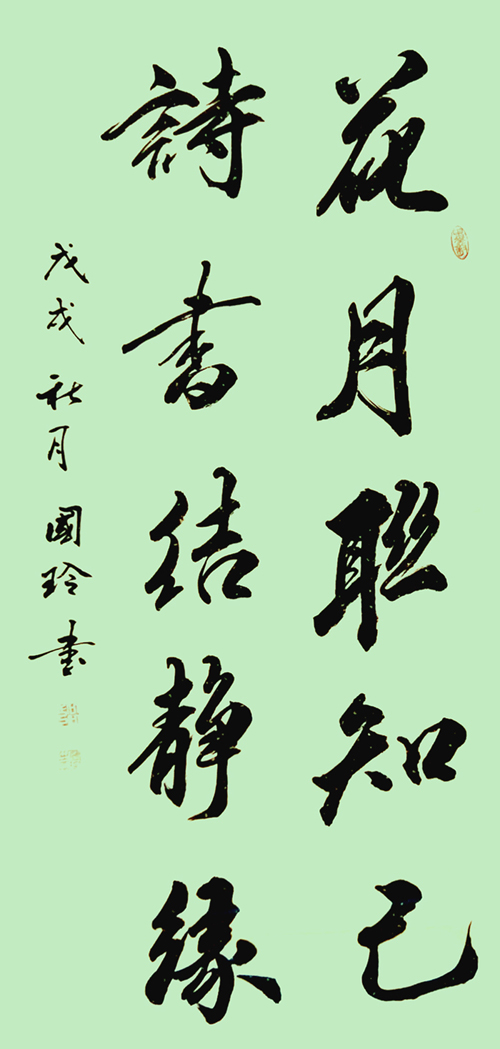 花月聯知己
詩書结静缘
戊戌秋月國玲书